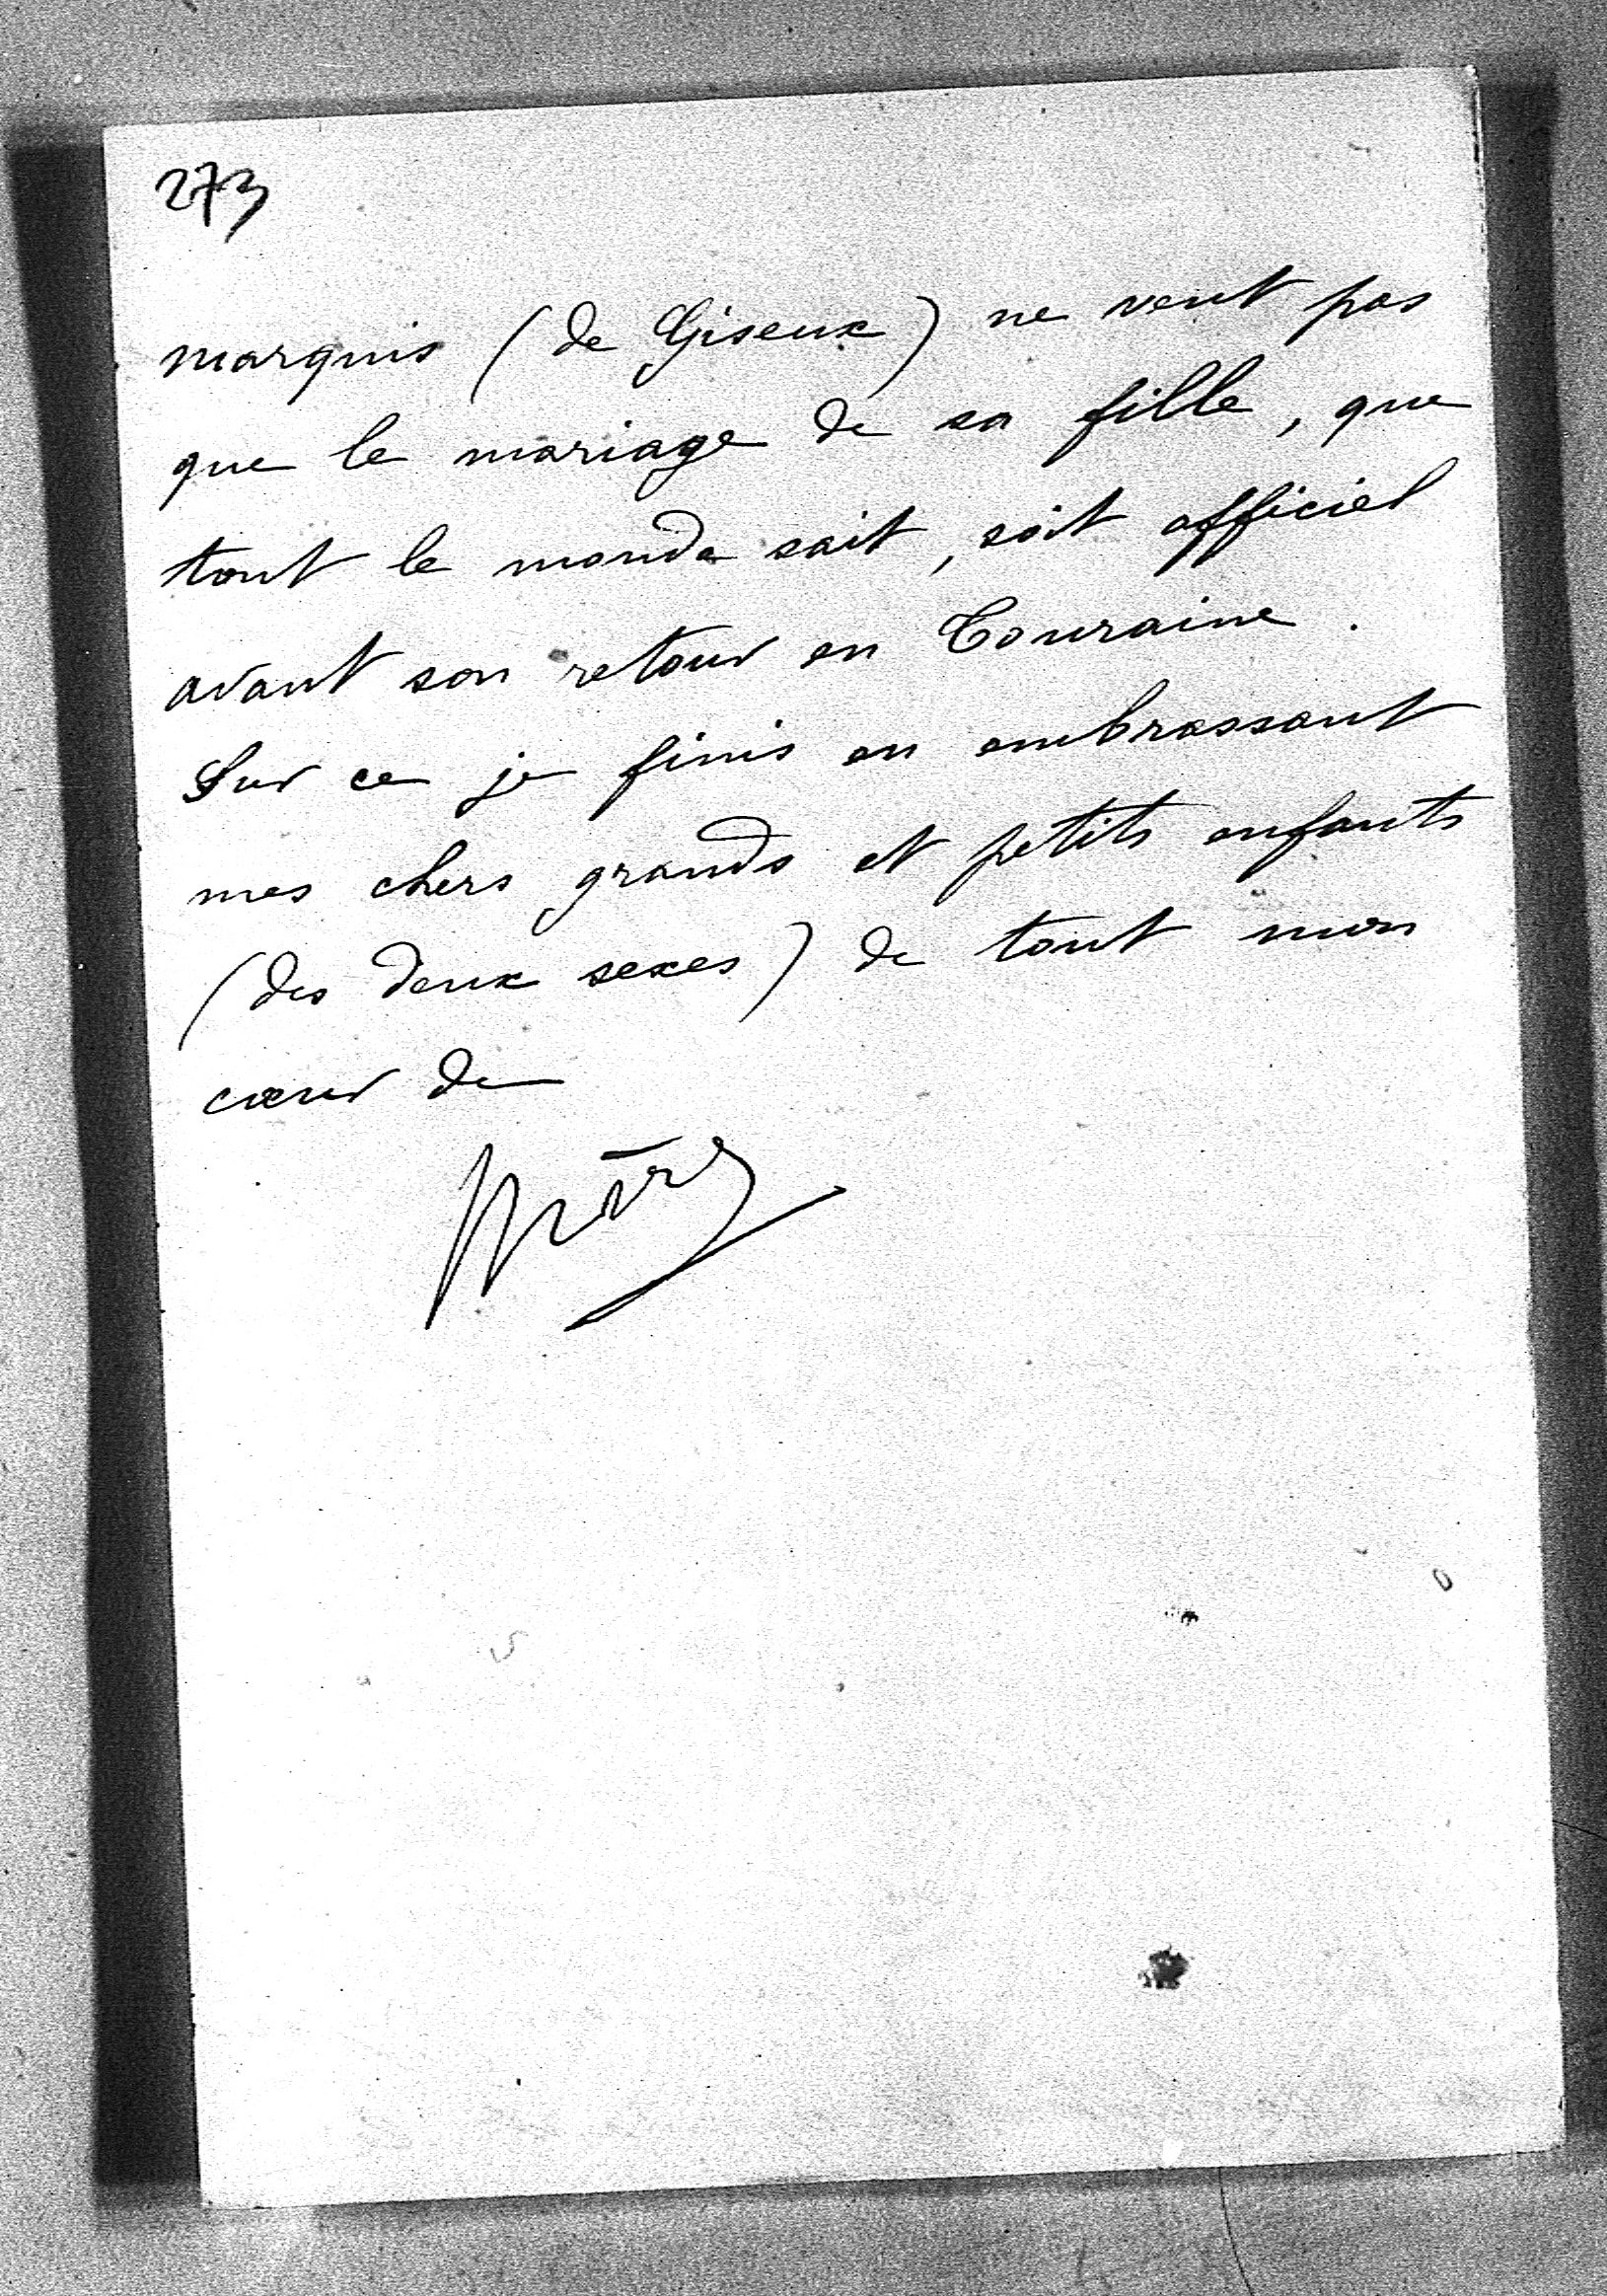 273
marquis (de Giseux) ne veut pas
que le mariage de sa fille, que
tout le monde sait, soit officiel
avant son retour en Touraine.
Sur ce je finis en embrassant
mes chers grands et petits enfants
(des deux sexes) de tout mon
cœur de